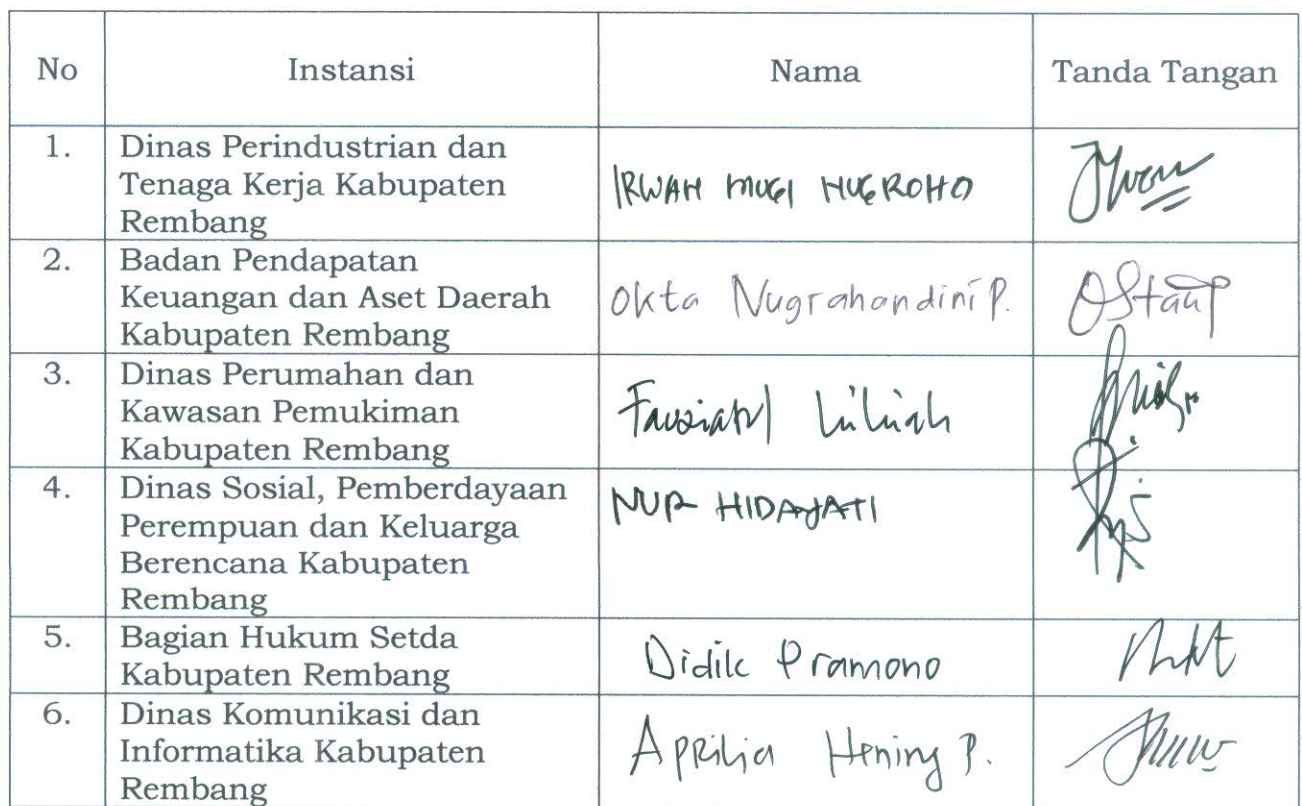 No Instansi Nama Tanda Tangan
1. Dinas Perindustrian dan
Tenaga Kerja Kabupaten
Rembang
IRWAN MUGI NUGROHO
2. Badan Pendapatan
Keuangan dan Aset Daerah
Kabupaten Rembang
Okta Nugrahandini P.
3. Dinas Perumahan dan
Kawasan Pemukiman
Kabupaten Rembang
Fauziatul
4. Dinas Sosial, Pemberdayaan
Perempuan dan Keluarga
Berencana Kabupaten
Rembang
NUR HIDAYATI
5. Bagian Hukum Setda
Kabupaten Rembang
Didik Pramono
6. Dinas Komunikasi dan
Informatika Kabupaten
Rembang
Aprilia Hening P.